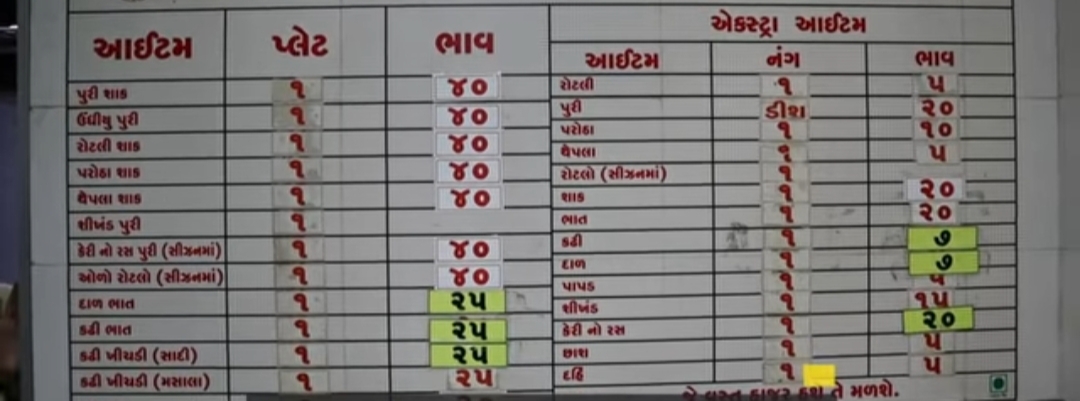 આઈટમ પ્લેટ ભાવ
પુરી શાક ૧ ૪૦
ઉંધીયુ પુરી ૧ ૪૦
રોટલી શાક ૧ ૪૦
પરોઠા શાક ૧ ૪૦
થેપલા શાક ૧ ૪૦
શીખંડ પુરી ૧
કેરી નો રસ પુરી (સીઝનમાં) ૧ ૪૦
ઓળો રોટલો (સીઝનમાં) ૧ ૪૦
દાળ ભાત ૧ ૨૫
કઢી ભાત ૧ ૨૫
કઢી ખીચડી (સાદી) ૧ ૨૫
કઢી ખીચડી (મસાલા) ૧ ૨૫
એકસ્ટ્રા આઈટમ
આઈટમ નંગ ભાવ
રોટલી ૧ ૫
પુરી ડીશ ૨૦
પરોઠા ૧ ૧૦
થેપલા ૧ ૫
રોટલો (સીઝનમાં) ૧
શાક ૧ ૨૦
ભાત ૧ ૨૦
કઢી ૧ ૭
દાળ ૧ ૭
પાપડ ૧ ૫
શીખંડ ૧ ૧૫
કેરી નો રસ ૧ ૨૦
છાશ ૧ ૫
દહિં ૧ ૫
જે વસ્તુ હાજર હશે તે મળશે.